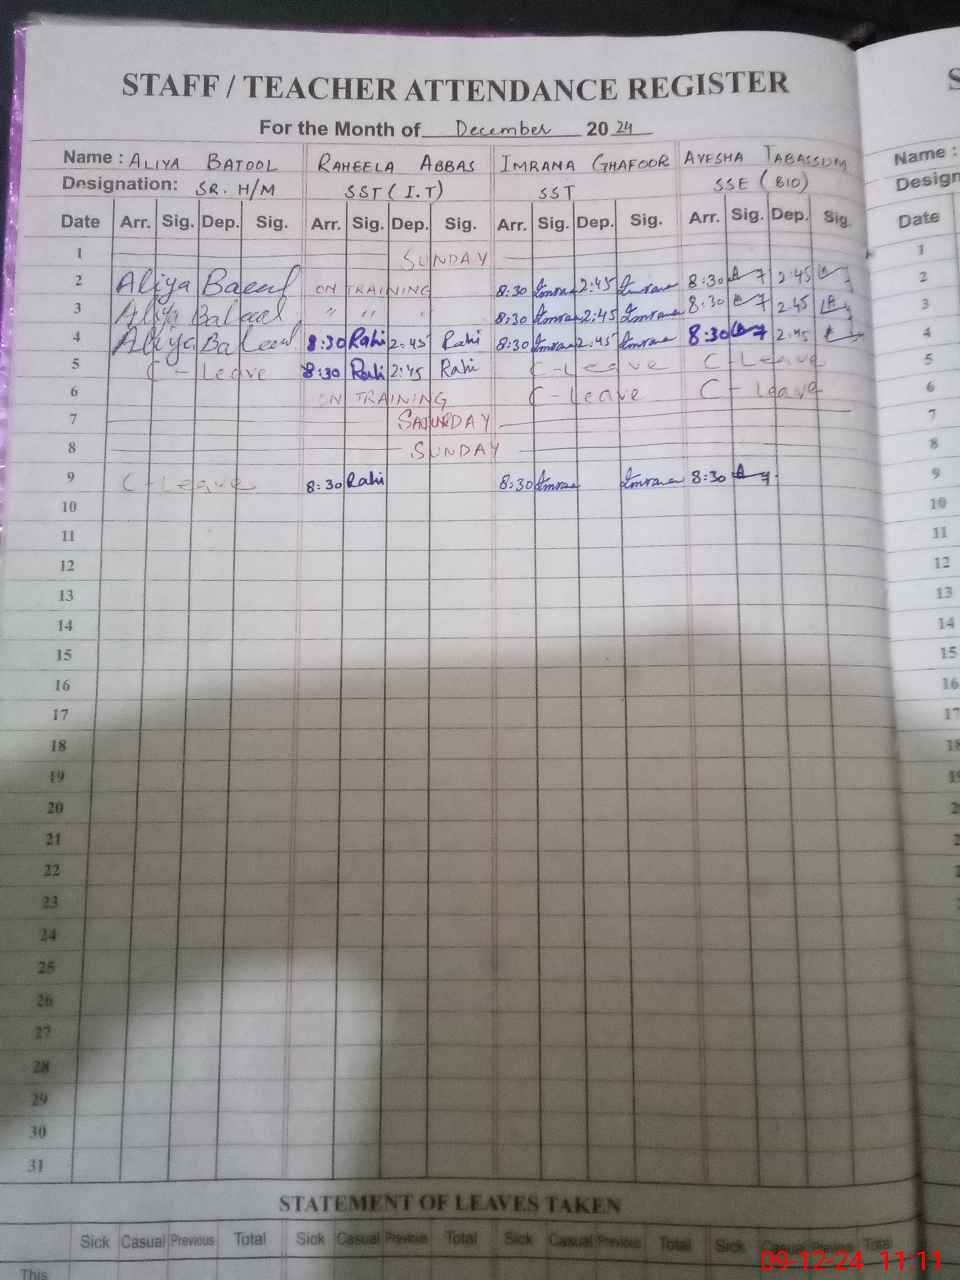 STAFF / TEACHER ATTENDANCE REGISTER
For the Month of December 2024
Name : ALIYA BATOOL RAHEELA ABBAS IMRANA GHAFOOR AYESHA TABASSUM Name :
Designation: SR. H/M SST (I.T) SST SSE (BIO) Design
Date Arr. Sig. Dep. Sig. Arr. Sig. Dep. Sig. Arr. Sig. Dep. Sig. Arr. Sig. Dep. Sig. Date
1 SUNDAY 1
2 Aliya ON TRAINING 8:30 Imrana 2:45 Imrana 8:30 2:45 2
3 Aliya " " " 8:30 Imrana 2:45 Imrana 8:30 2:45 3
4 Aliya 8:30 Rahi 2:45 Rahi 8:30 Imrana 2:45 Imrana 8:30 2:45 4
5 C - Leave 8:30 Rahi 2:45 Rahi C - Leave C - Leave 5
6 ON TRAINING C - Leave C - Leave 6
7 SATURDAY 7
8 SUNDAY 8
9 C - Leave 8:30 Rahi 8:30 Imrana Imrana 8:30 9
10 10
11 11
12 12
13 13
14 14
15 15
16 16
17 17
18 18
19
20
21
22
23
24
25
26
27
28
29
30
31
STATEMENT OF LEAVES TAKEN
Sick Casual Previous Total Sick Casual Previous Total Sick Casual Previous Total Sick Casual Previous Total
This
09-12-24 11:11